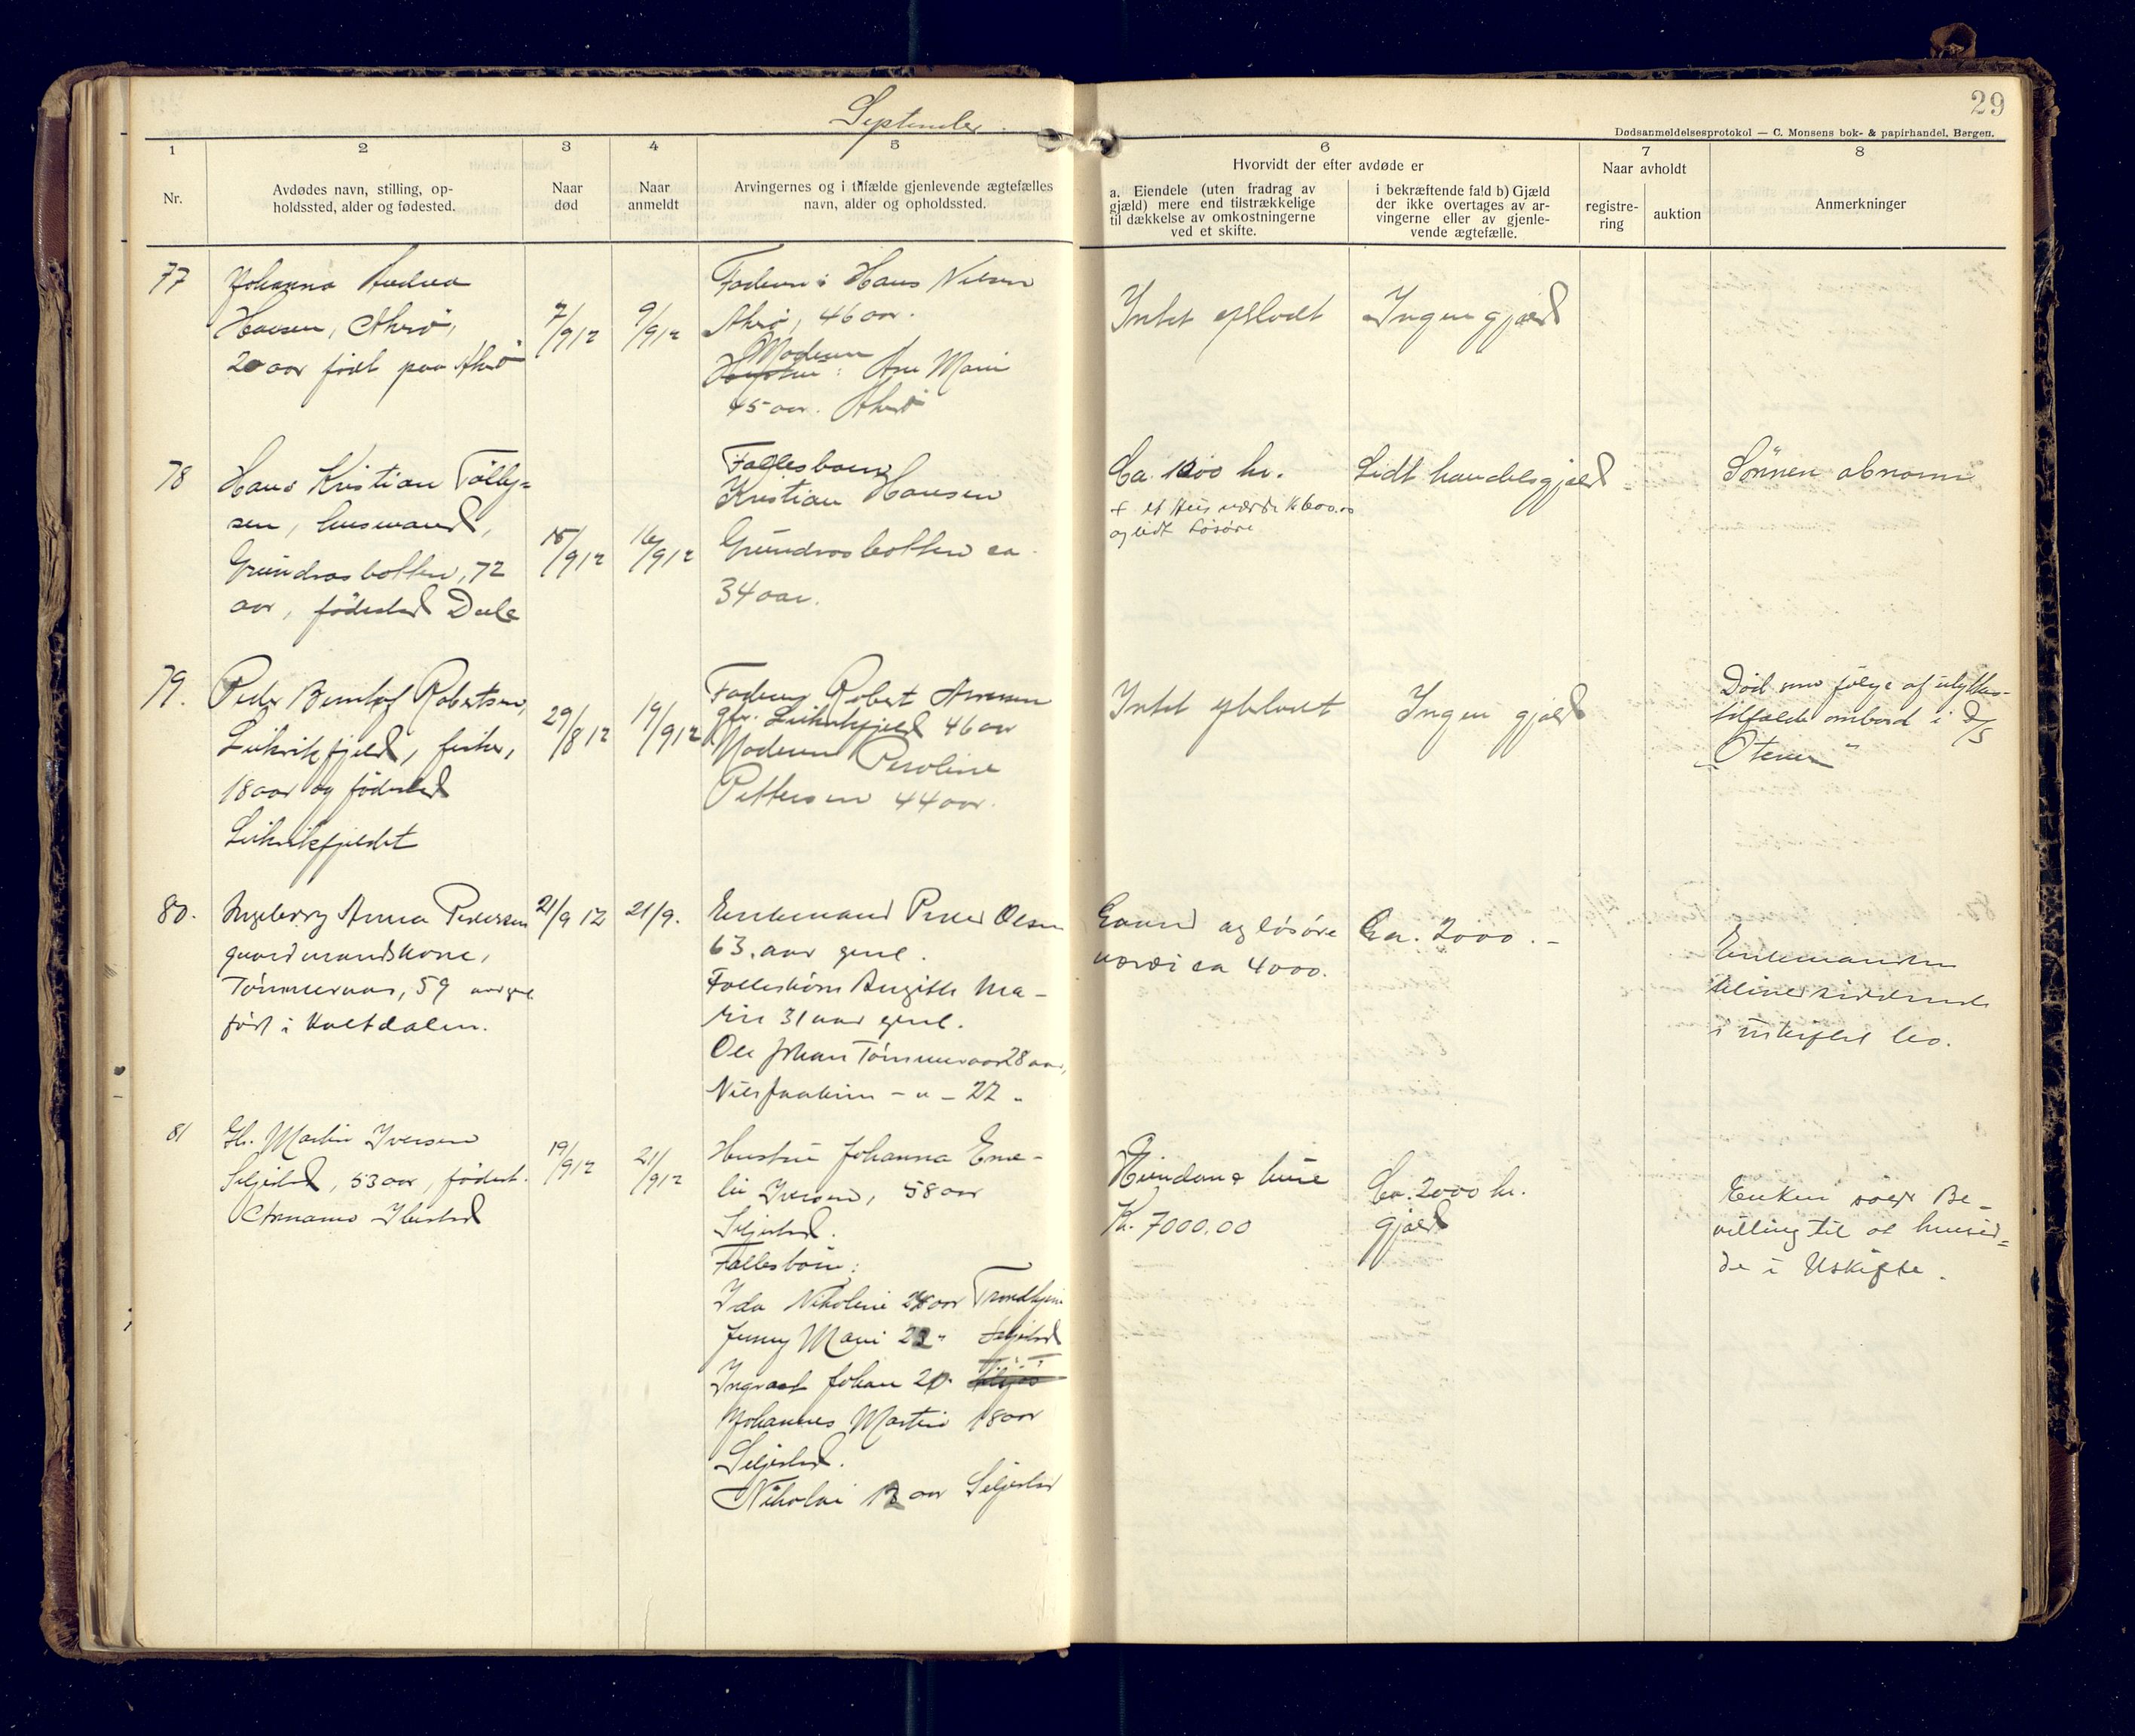 September
29
Dødsanmeldelsesprotokol — C. Monsens bok- & papirhandel, Bergen.
1
Nr.
2
Avdødes navn, stilling, op-
holdssted, alder og fødested.
3
Naar
død
4
Naar
anmeldt
5
Arvingernes og i tilfælde gjenlevende ægtefælles
navn, alder og opholdssted.
6
Hvorvidt der efter avdøde er
a. Eiendele (uten fradrag av
gjæld) mere end tilstrækkelige
til dækkelse av omkostningerne
ved et skifte.
i bekræftende fald b) Gjæld
der ikke overtages av ar-
vingerne eller av gjenle-
vende ægtefælle.
7
Naar avholdt
registre-
ring
auktion
8
Anmerkninger
77
Johanna Andrea
Hansen,
20 aar født paa
7/9 12
9/9 12
Faderen: Hans Nilsen
46 aar.
Moderen
: Ane Marie
45 aar.
Intet efterladt
Ingen gjæld
78
Hans Kristian Tolley=
sen, husmand,
Grundrosbotten, 72
aar, fødested
15/9 12
16/9 12
Fællesbarn
Kristian Hansen
Grundrosbotten ca
34 aar.
Ca. kr.
+ et Hus værdi K 600.00
og lidt Løsøre
Lidt handelsgjæld
Sønnen abnorm
79.
Peder Robertsen,
Leikvikfjeld, fisker,
18 aar og fødested
Leikvikfjeldet
29/8 12
19/9 12
Faderen Robert
Leikvikfjeld 46 aar
Moderen Peroline
Pettersen 44 aar.
Intet efterladt
Ingen gjæld
Død som følge af ulykkes-
tilfælde ombord i D/S
"Oteren"
80.
Ingeborg Anna Pedersen
gaardmandskone,
Tømmernes, 59 aar gml.
født i
21/9 12
21/9.
Enkemand Peder Olsen
63. aar gml.
Fællesbørn Birgitte Ma-
rie 31 aar gml.
Ole Johan Tømmernes 28 aar,
Nils Joakim - " - 22 "
Gaard og løsøre
værdi ca 4000.
Ca. 2000.-
Enkemanden
bliver siddende
i uskiftet bo.
81
Gb. Martin Iversen
Seljestad, 53 aar, fødest.
Ibestad
19/9 12
21/9 12
Hustru Johanna Eme-
lie Iversen, 58 aar
Seljestad.
Fællesbørn:
Ida Nikoline aar Trondhjem
Jenny Marie " Seljestad
Ingvart Johan
Johannes Martin 18 aar
Seljestad.
Nikolai aar Seljestad
Eiendom & huse
Kr. 7000.00
Ca. 2000 kr.
gjæld
Enken søger Be-
villing til at hensid=
de i Uskifte.